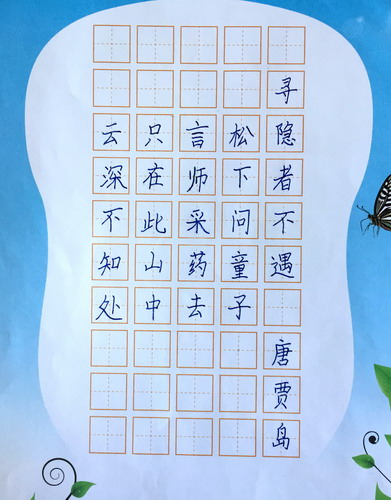 寻隐者不遇 唐贾岛
松下问童子
言师采药去
只在此山中
云深不知处